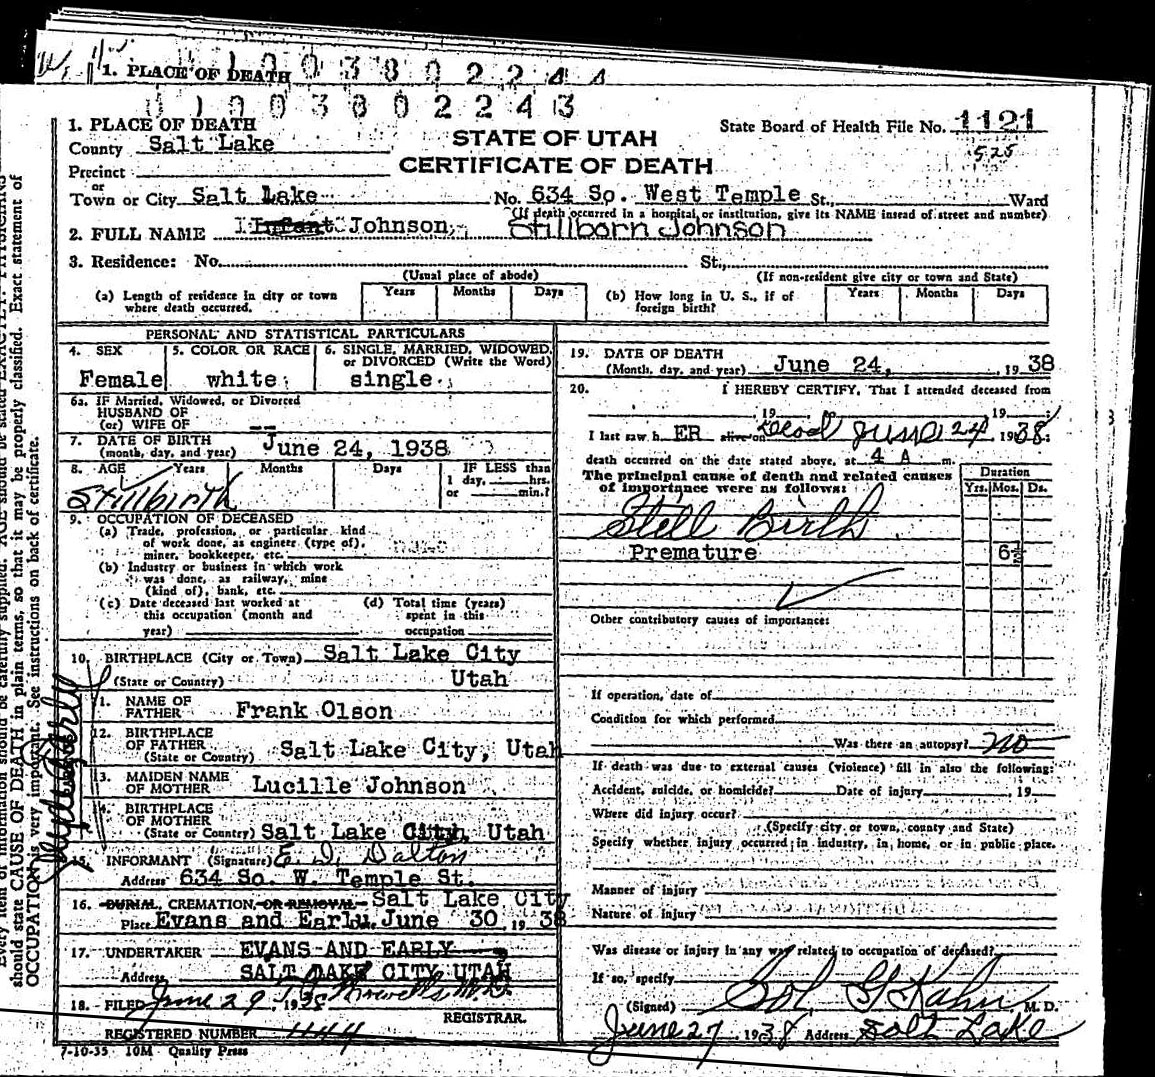 1. PLACE OF DEATH 0 0 3 8 0 2 2 4 4
0 1 0 0 3 8 0 2 2 4 3
1. PLACE OF DEATH
County Salt Lake
Precinct
or
Town or City Salt Lake
STATE OF UTAH
CERTIFICATE OF DEATH
State Board of Health File No. 1121
525
No. 634 So. West Temple St., Ward
(If death occurred in a hospital or institution, give its NAME instead of street and number)
2. FULL NAME Infant Johnson, Stillborn Johnson
3. Residence: No. St.,
(Usual place of abode) (If non-resident give city or town and State)
(a) Length of residence in city or town where death occurred. Years Months Days
(b) How long in U. S., if of foreign birth? Years Months Days
PERSONAL AND STATISTICAL PARTICULARS
4. SEX 5. COLOR OR RACE 6. SINGLE, MARRIED, WIDOWED, or DIVORCED (Write the Word)
Female white single
6a. IF Married, Widowed, or Divorced
HUSBAND OF
(or) WIFE OF --
7. DATE OF BIRTH
(month, day, and year) June 24, 1938
8. AGE Years Months Days IF LESS than
1 day, hrs.
or min.?
Stillbirth
9. OCCUPATION OF DECEASED
(a) Trade, profession, or particular kind
of work done, as engineer (type of),
miner, bookkeeper, etc.
(b) Industry or business in which work
was done, as railway, mine
(kind of), bank, etc.
(c) Date deceased last worked at
this occupation (month and
year)
(d) Total time (years)
spent in this
occupation
10. BIRTHPLACE (City or Town) Salt Lake City
(State or Country) Utah
1. NAME OF
FATHER Frank Olson
12. BIRTHPLACE
OF FATHER
(State or Country) Salt Lake City, Utah
13. MAIDEN NAME
OF MOTHER Lucille Johnson
BIRTHPLACE
OF MOTHER
(State or Country) Salt Lake City, Utah
15. INFORMANT (Signature) E. D. Dalton
Address 634 So. W. Temple St.
16. BURIAL, CREMATION, OR REMOVAL Salt Lake City
Place Evans and Early June 30, 1938
17. UNDERTAKER EVANS AND EARLY
Address SALT LAKE CITY UTAH
18. FILED June 29, 1938
REGISTRAR.
REGISTERED NUMBER 444
7-10-35 10M Quality Press
19. DATE OF DEATH
(Month, day, and year) June 24, , 19 38
20. I HEREBY CERTIFY, That I attended deceased from
, 19 , 19 ;
I last saw h ER alive on Dead June 24 1938;
death occurred on the date stated above, at 4 A m.
The principal cause of death and related causes
of importance were as follows:
Duration
Yrs. Mos. Ds.
Still Birth
Premature 6½
Other contributory causes of importance:
If operation, date of
Condition for which performed
Was there an autopsy? no
If death was due to external causes (violence) fill in also the following:
Accident, suicide, or homicide? Date of injury , 19
Where did injury occur?
(Specify city or town, county and State)
Specify whether injury occurred in industry, in home, or in public place.
Manner of injury
Nature of injury
Was disease or injury in any way related to occupation of deceased?
If so, specify
(Signed) Sol G Kahn M. D.
June 27 1938 Address Salt Lake
should state CAUSE OF DEATH in plain terms, so that it may be properly classified. Exact statement of
OCCUPATION is very important. See instructions on back of certificate.